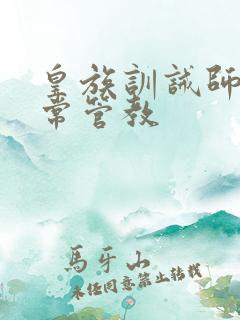 皇族訓誡師
常管教
馬牙山
未經同意禁止轉載